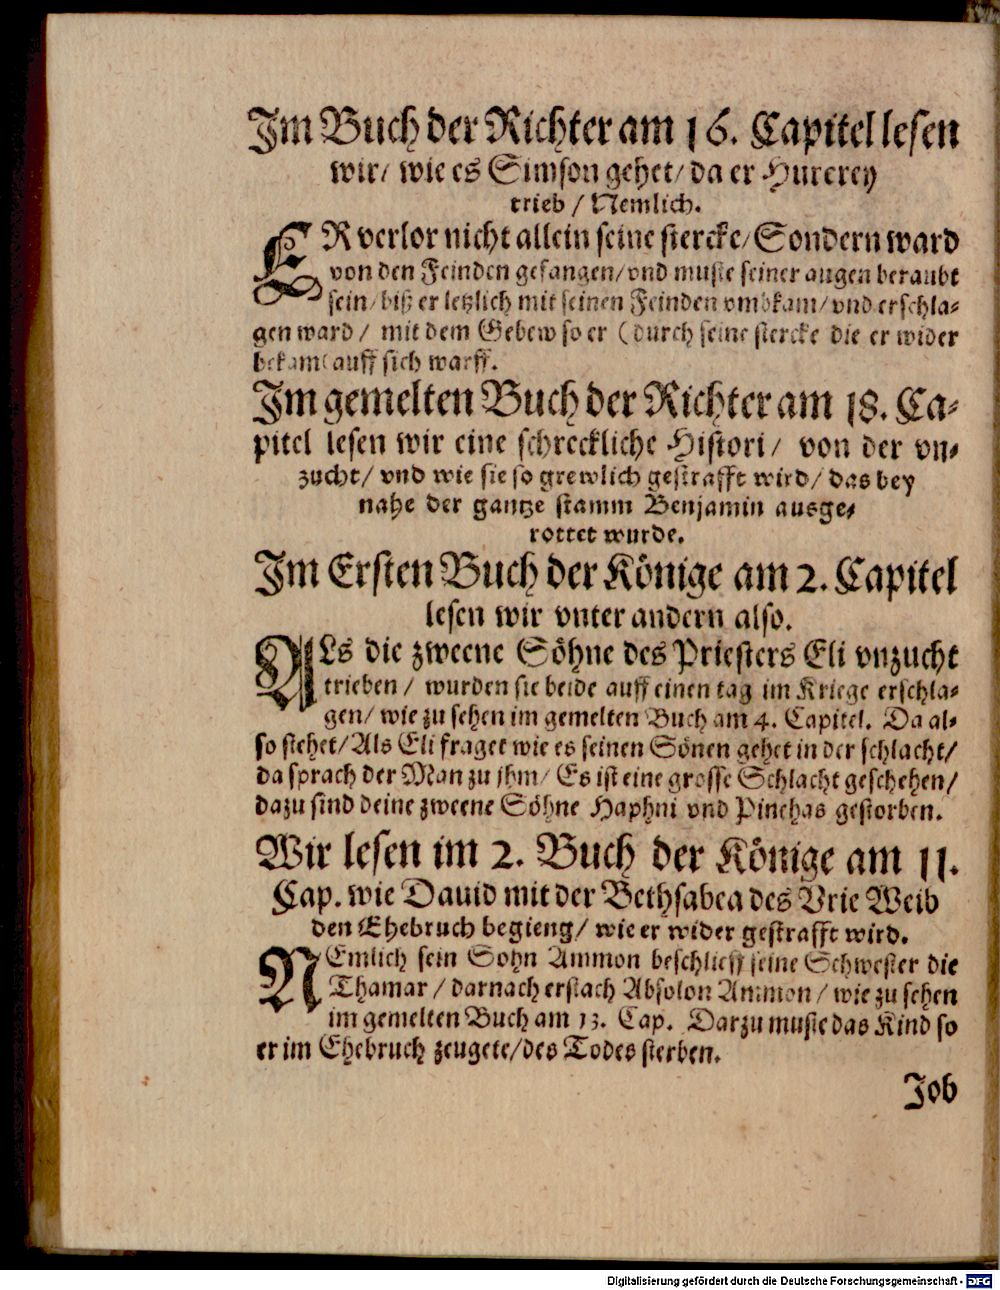 Im Buch der Richter am 16. Capitel lesen
wir/ wie es Simson gehet/ da er Hurerey
trieb / Nemlich.
ER verlor nicht allein seine stercke/ Sondern ward
von den Feinden gefangen/ vnd muste seiner augen beraubt
sein/ biß er letzlich mit seinen Feinden vmbkam/ vnd erschla-
gen ward / mit dem Gebew so er (durch seine stercke die er wider
bekam( auff sich warff.
Im gemelten Buch der Richter am 18. Ca-
pitel lesen wir eine schreckliche Histori/ von der vn-
zucht/ vnd wie sie so grewlich gestrafft wird/ das bey
nahe der gantze stamm Benjamin ausge-
rottet wurde.
Im Ersten Buch der Könige am 2. Capitel
lesen wir vnter andern also.
ALs die zweene Söhne des Priesters Eli vnzucht
trieben / wurden sie beide auff einen tag im Kriege erschla-
gen/ wie zu sehen im gemelten Buch am 4. Capitel. Da al-
so stehet/ Als Eli fraget wie es seinen Sönen gehet in der schlacht/
da sprach der Man zu jhm/ Es ist eine grosse Schlacht geschehen/
dazu sind deine zweene Söhne Haphni vnd Pinehas gestorben.
Wir lesen im 2. Buch der Könige am 11.
Cap. wie Dauid mit der Bethsabea des Vrie Weib
den Ehebruch begieng/ wie er wider gestrafft wird.
NEmlich sein Sohn Ammon beschlieff seine Schwester die
Thamar / darnach erstach Absolon Ammon / wie zu sehen
im gemelten Buch am 13. Cap. Darzu muste das Kind so
er im Ehebruch zeugete/ des Todes sterben.
Job
Digitalisierung gefördert durch die Deutsche Forschungsgemeinschaft - DFG